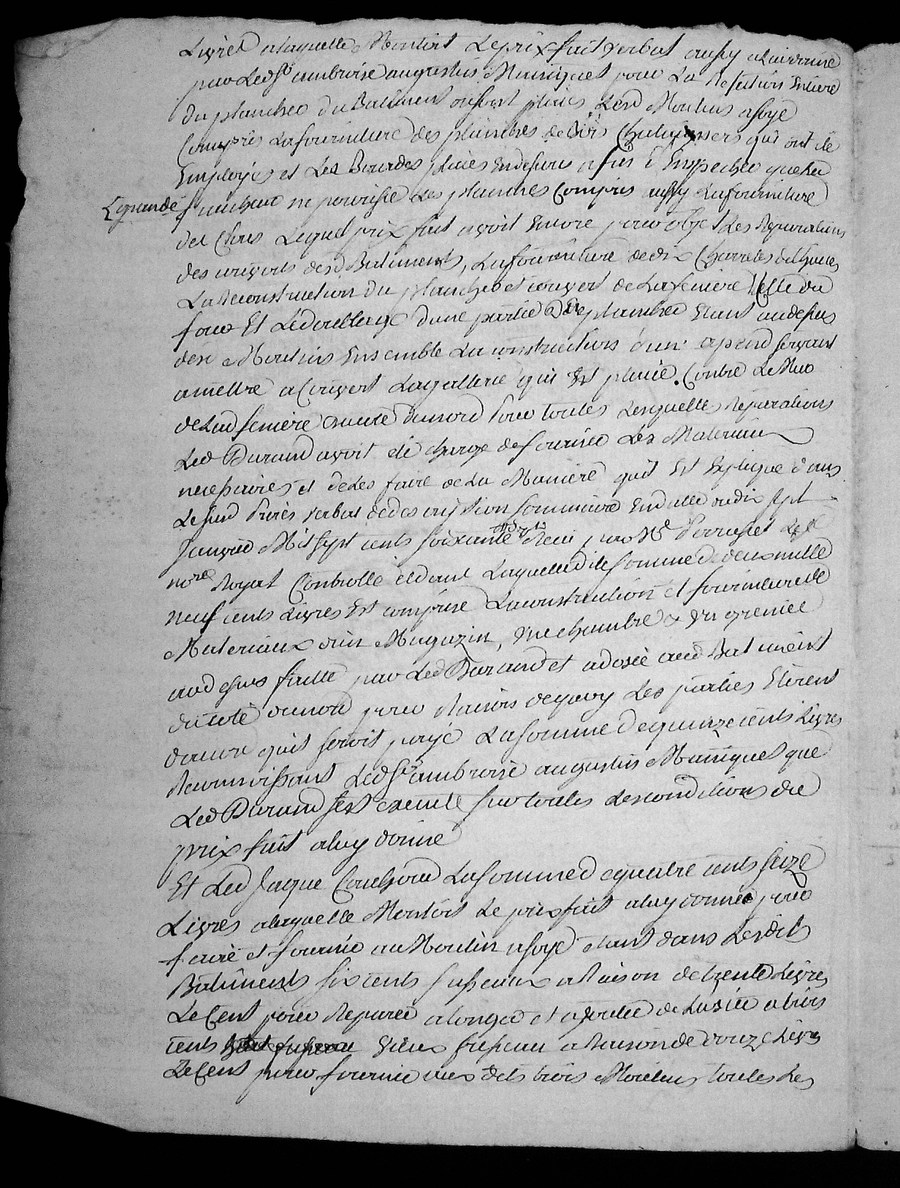 Livres a laquelle Montoit Le prix fait verbal aussy a lui donné
par Led Sr ambroise augustin Muniquet pour La Refection Entiere
du planchec du Batiment ou sont placés Lesd Moulins a soye
Compris La fourniture des plainches de bois Chataigners qui ont été
Employés et Les Bourdes placés Endessus afin d'Empechec que La
Lgrande fraicheur ne pourisse Les plainches Compris aussy La fourniture
des Clous Lequel prix fait avoit Encore pour objet Les Reparations
des couverts desd Batiments, La fourniture de dix Charretes de thuiles
La Reconstruction du planchec et couvert de La feniere Celle du
four Et Le doublage d'une partie du planchec Etant audessus
desd Moulins Ensemble La construction d'un apend servant
a mettre a Couvert La gallerie qui Est placée Contre Le Mur
de Lad feniere du coté du nord pour toutes Lesquelles Reparations
Led Durand avoit été chargé de fournir Les Materiaux
necessaires et de Les faire de La Maniere qu'il Est Expliqué dans
Le susd Procès verbal de description sommaire En datte du dix sept
Janvier Mil sept cents soixante Reçu par Me
nore Royal Controllé et dans Laquelle dite somme de deux mille
neuf cents Livres Est comprise La construction et fourniture de
Materiaux d'un Magazin, une chambre & un grenier
au dessus faitte par Led Durand et adossée aud Batiment
du coté du nord pour Raison de quoy Les parties Etoient
d'acord qu'il seroit payé La somme de quinze cents Livres
Reconnoissant Led Sr ambroise augustin Muniquet que
Led Durand s'est executé sur toutes Les conditions du
prix fait a luy donné
Et Led Jaque Couchoud La somme de quatre cents seize
Livres a laquelle Montoit Le prix fait a luy donné pour
faire et fournir au Moulin a soye etant dans Lesdits
Batiments six cents fuseaux a Raison de trente Livres
Le Cent pour Reparer alonger et
cents vieux fuseaux a Raison de douze Livres
Le Cent pour fournir aux dits trois Moulins toutes Les